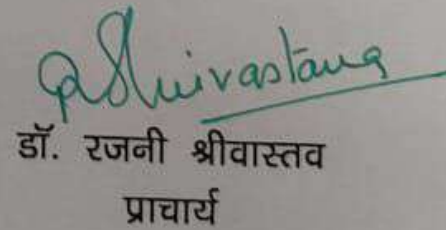 RShrivastava
डॉ. रजनी श्रीवास्तव
प्राचार्य